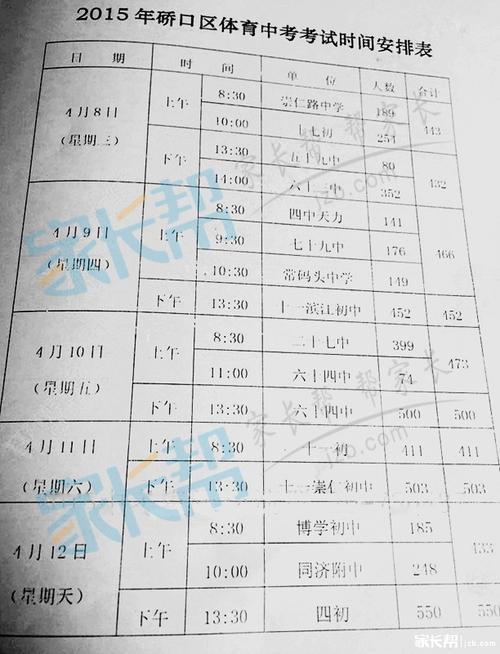 2015年硚口区体育中考考试时间安排表
日 期 时 间 单 位 人数 合计
4月8日（星期三） 上午 8:30 崇仁路中学 189 443
10:00 七七初 254
下午 13:30 五十九中 80 432
14:00 六十一中 352
4月9日（星期四） 上午 8:30 四中天力 141 466
9:30 七十九中 176
10:30 常码头中学 149
下午 13:30 十一滨江初中 452 452
4月10日（星期五） 上午 8:30 二十七中 399 473
11:00 六十四中 74
下午 13:30 六十四中 500 500
4月11日（星期六） 上午 8:30 十一初 411 411
下午 13:30 十一崇仁初中 503 503
4月12日（星期天） 上午 8:30 博学初中 185 433
10:00 同济附中 248
下午 13:30 四初 550 550
家长帮
家长帮 jzb.com
家长帮 家长帮
jzb.com
家长帮 jzb.com